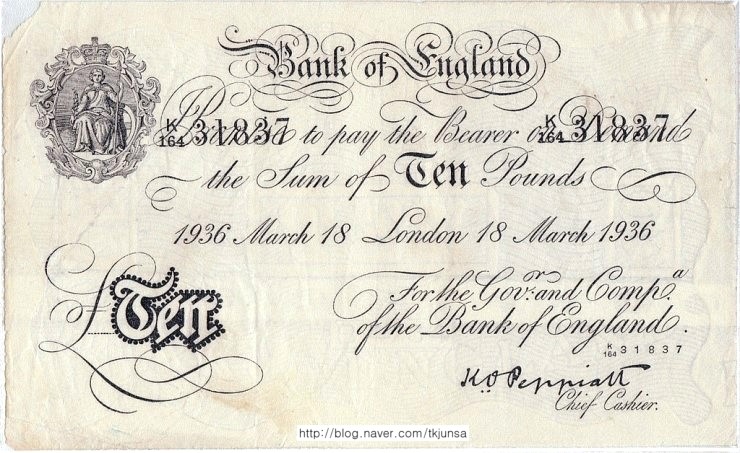 Bank of England
I Promise to pay the Bearer on Demand
K/164 31837 K/164 31837
the Sum of Ten Pounds
1936 March 18 London 18 March 1936
For the Govr. and Compa.
of the Bank of England.
£Ten
K/164 31837
K.O Peppiatt
Chief Cashier.
http://blog.naver.com/tkjunsa